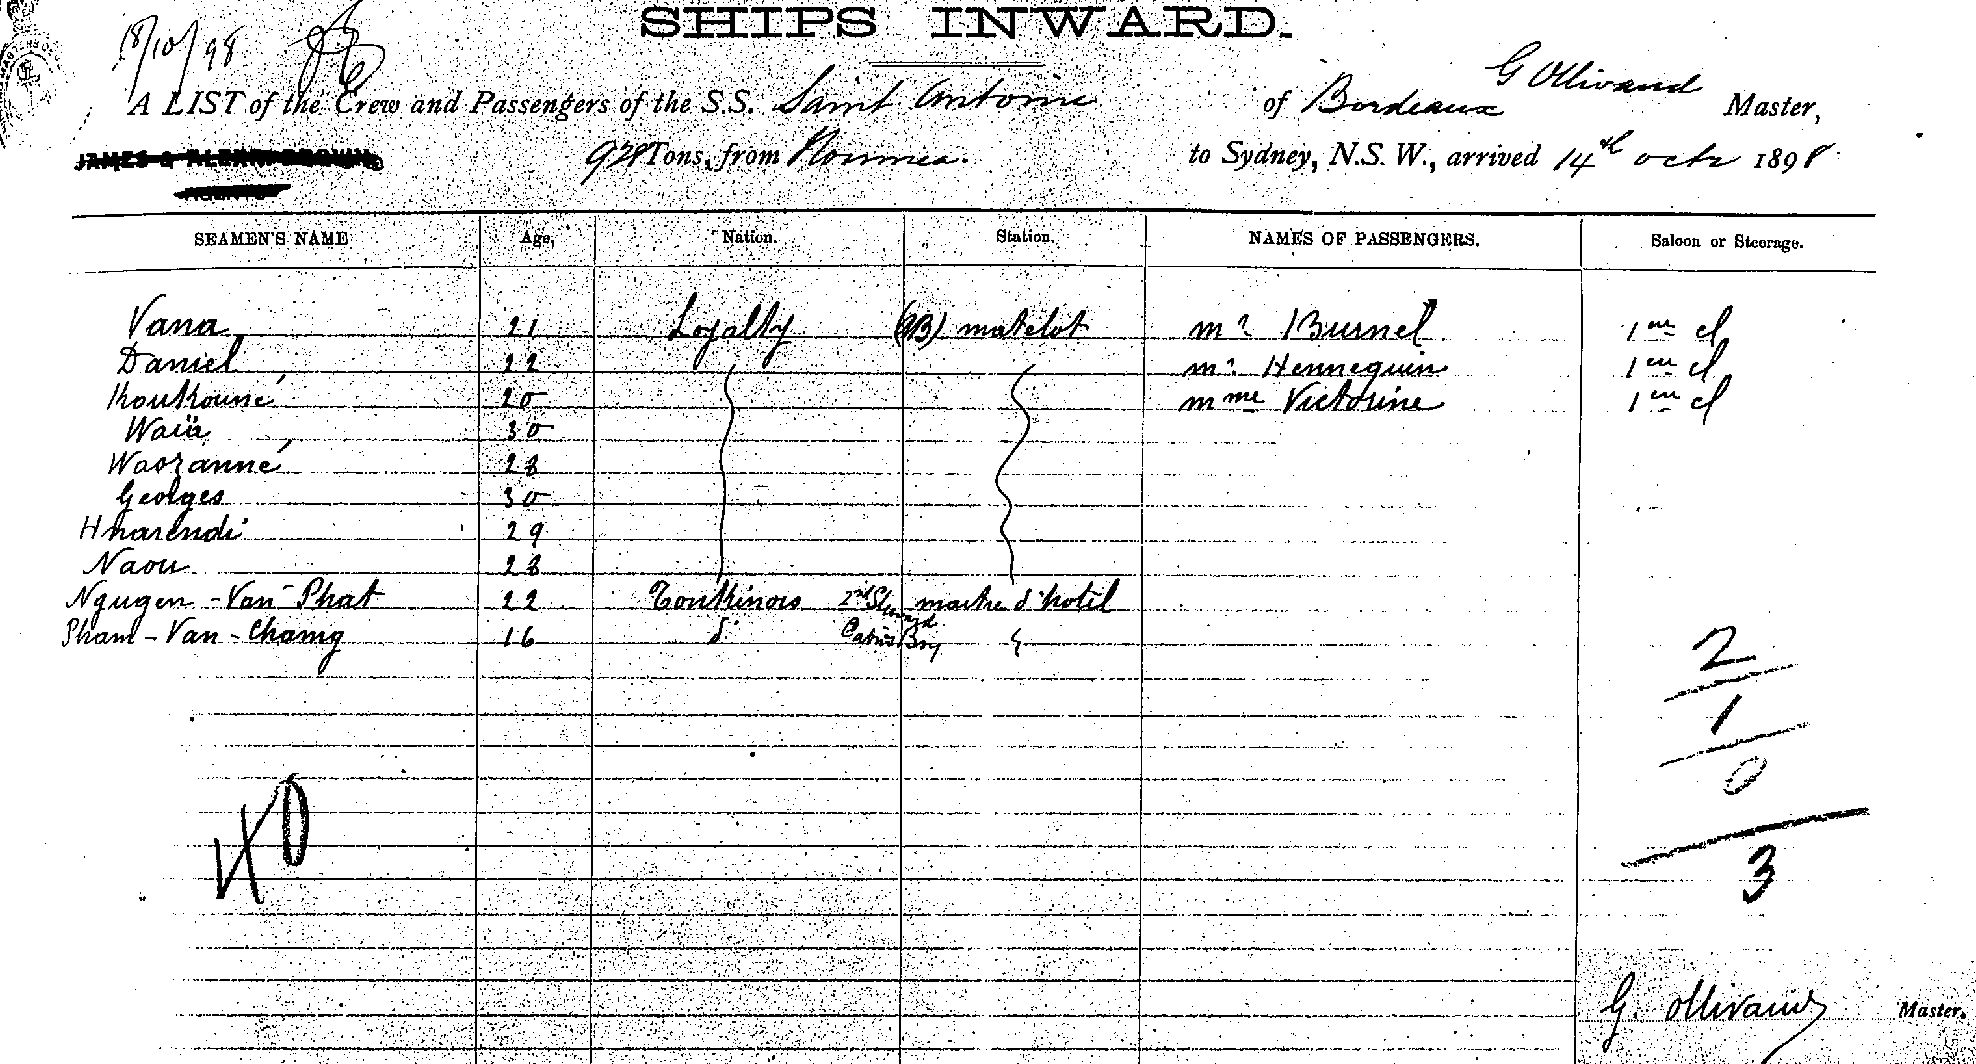 SHIPS INWARD.
18/10/98
G Ollivaud
A LIST of the Crew and Passengers of the S.S. Saint Antoine of Bordeaux Master,
JAMES & ALEXR. BROWN
AGENTS
928 Tons, from Noumea. to Sydney, N.S.W., arrived 14th octr 1898.
SEAMEN'S NAME Age, Nation. Station. NAMES OF PASSENGERS. Saloon or Steerage.
Vana 21 Loyalty (AB) matelot mr Burnel 1ere cl
Daniel 22 mr Hennequin 1ere cl
Koukouné 20 mme Victorine 1ere cl
Waïa 30
Waozanné 28
Georges 30
Hnarendi 29
Naou 28
Nguyen-Van Phat 22 Tonkinois 2nd Steward maitre d'hotel
Pham-Van-Chamg 16 d° Cabin Boy
2
1
0
40
3
G. Ollivaud Master.